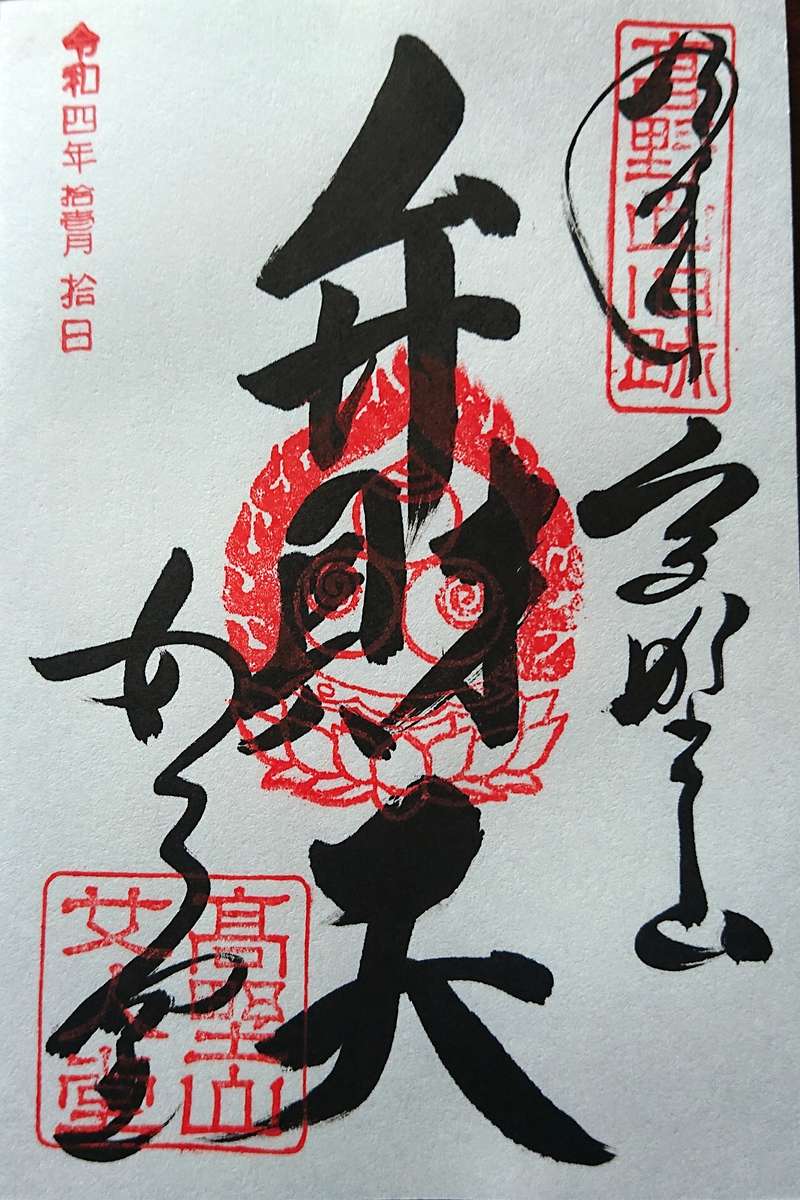 奉拝
高野山旧跡
高野山
弁財天
女人堂
高野山
女人堂
令和四年拾壹月拾日